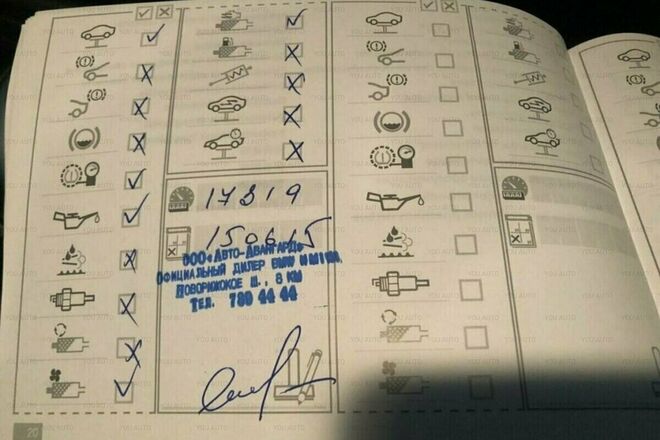 17819
150615
ООО «Авто-Авангард»
Официальный дилер BMW и MINI
Новорижское ш., 8 км
Тел. 789 44 44
20